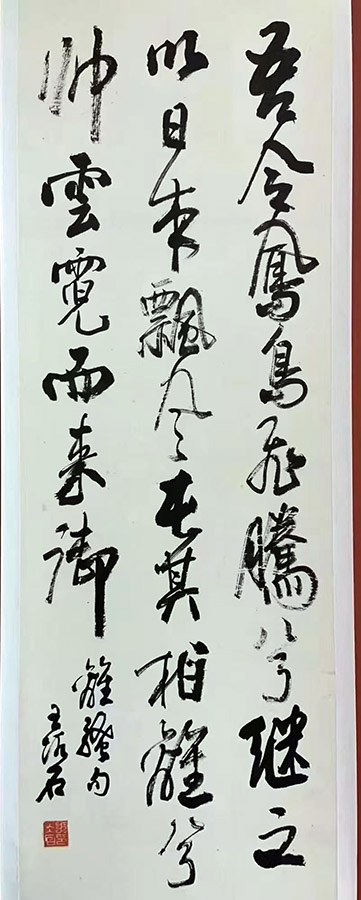 吾令鳳鳥飛騰兮继之
以日夜飄风屯其相離兮
帅雲霓而来御
離騷句
王石